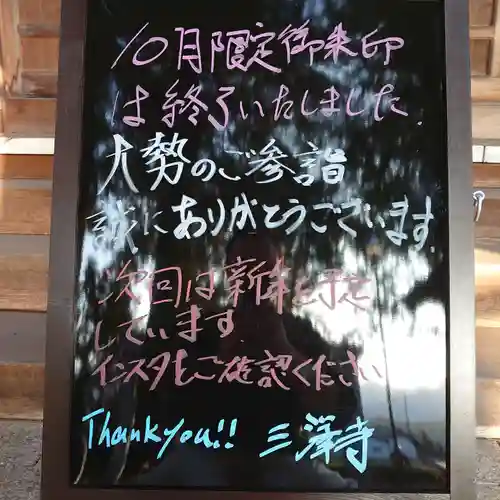 10月限定御朱印
は終了いたしました.
大勢のご参詣
誠にありがとうございます.
次回は新年を予定
しています.
インスタもご確認ください
Thank you!! 三澤寺